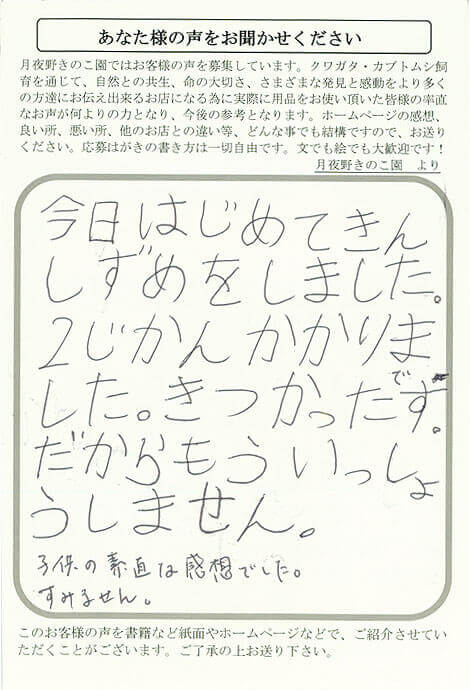 あなた様の声をお聞かせください
月夜野きのこ園ではお客様の声を募集しています。クワガタ・カブトムシ飼
育を通じて、自然との共生、命の大切さ、さまざまな発見と感動をより多く
の方達にお伝え出来るお店になる為に実際に用品をお使い頂いた皆様の率直
なお声が何よりの力となり、今後の参考となります。ホームページの感想、
良い所、悪い所、他のお店との違い等、どんな事でも結構ですので、お送り
ください。応募はがきの書き方は一切自由です。文でも絵でも大歓迎です！
月夜野きのこ園　より
今日はじめてきん
しずめをしました。
2じかんかかりま
した。きつかったです。
だからもういっしょ
うしません。
子供の素直な感想でした。
すみません。
このお客様の声を書籍など紙面やホームページなどで、ご紹介させてい
ただくことがございます。ご了承の上お送り下さい。